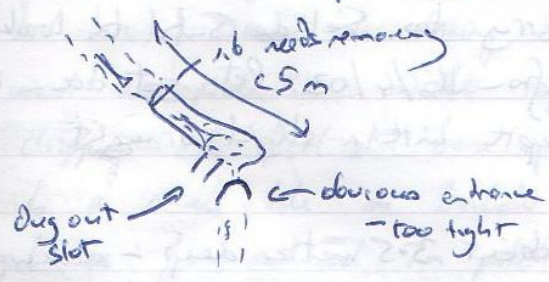 needs removing
<5 m
obvious entrance
- too tight
Dug out
slot